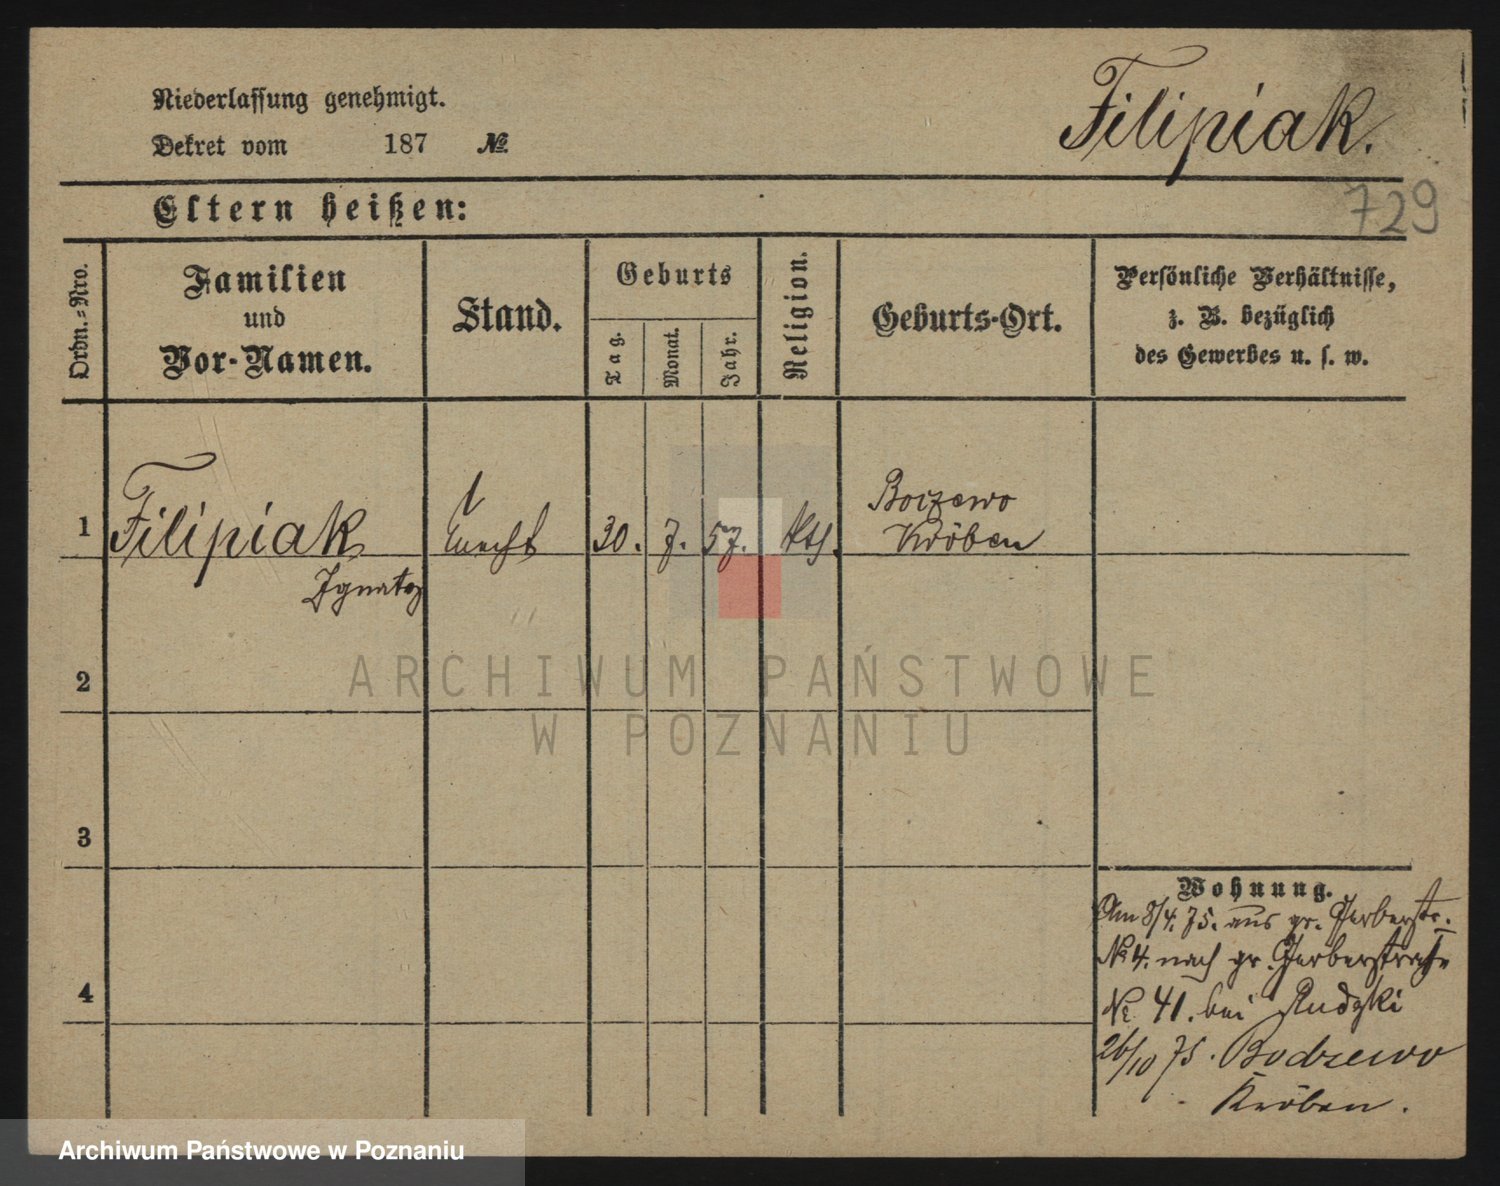 Niederlassung genehmigt.
Dekret vom 187 №
Filipiak.
729
Eltern heißen:
Ordn.-Nro.
Familien
und
Vor-Namen.
Stand.
Geburts
Tag.
Monat.
Jahr.
Religion.
Geburts-Ort.
Persönliche Verhältnisse,
z. B. bezüglich
des Gewerbes u. s. w.
1
Filipiak
Ignatz
Knecht
30.
7.
57.
kth.
Boczewo
Kröben
2
3
4
Wohnung.
Am 8/4. 75. aus gr. Gerberstr.
№ 4. nach gr. Gerberstraße
№ 41. bei Rudzki
26/10 75. Bodzewo
Kröben.
ARCHIWUM PAŃSTWOWE
W POZNANIU
Archiwum Państwowe w Poznaniu